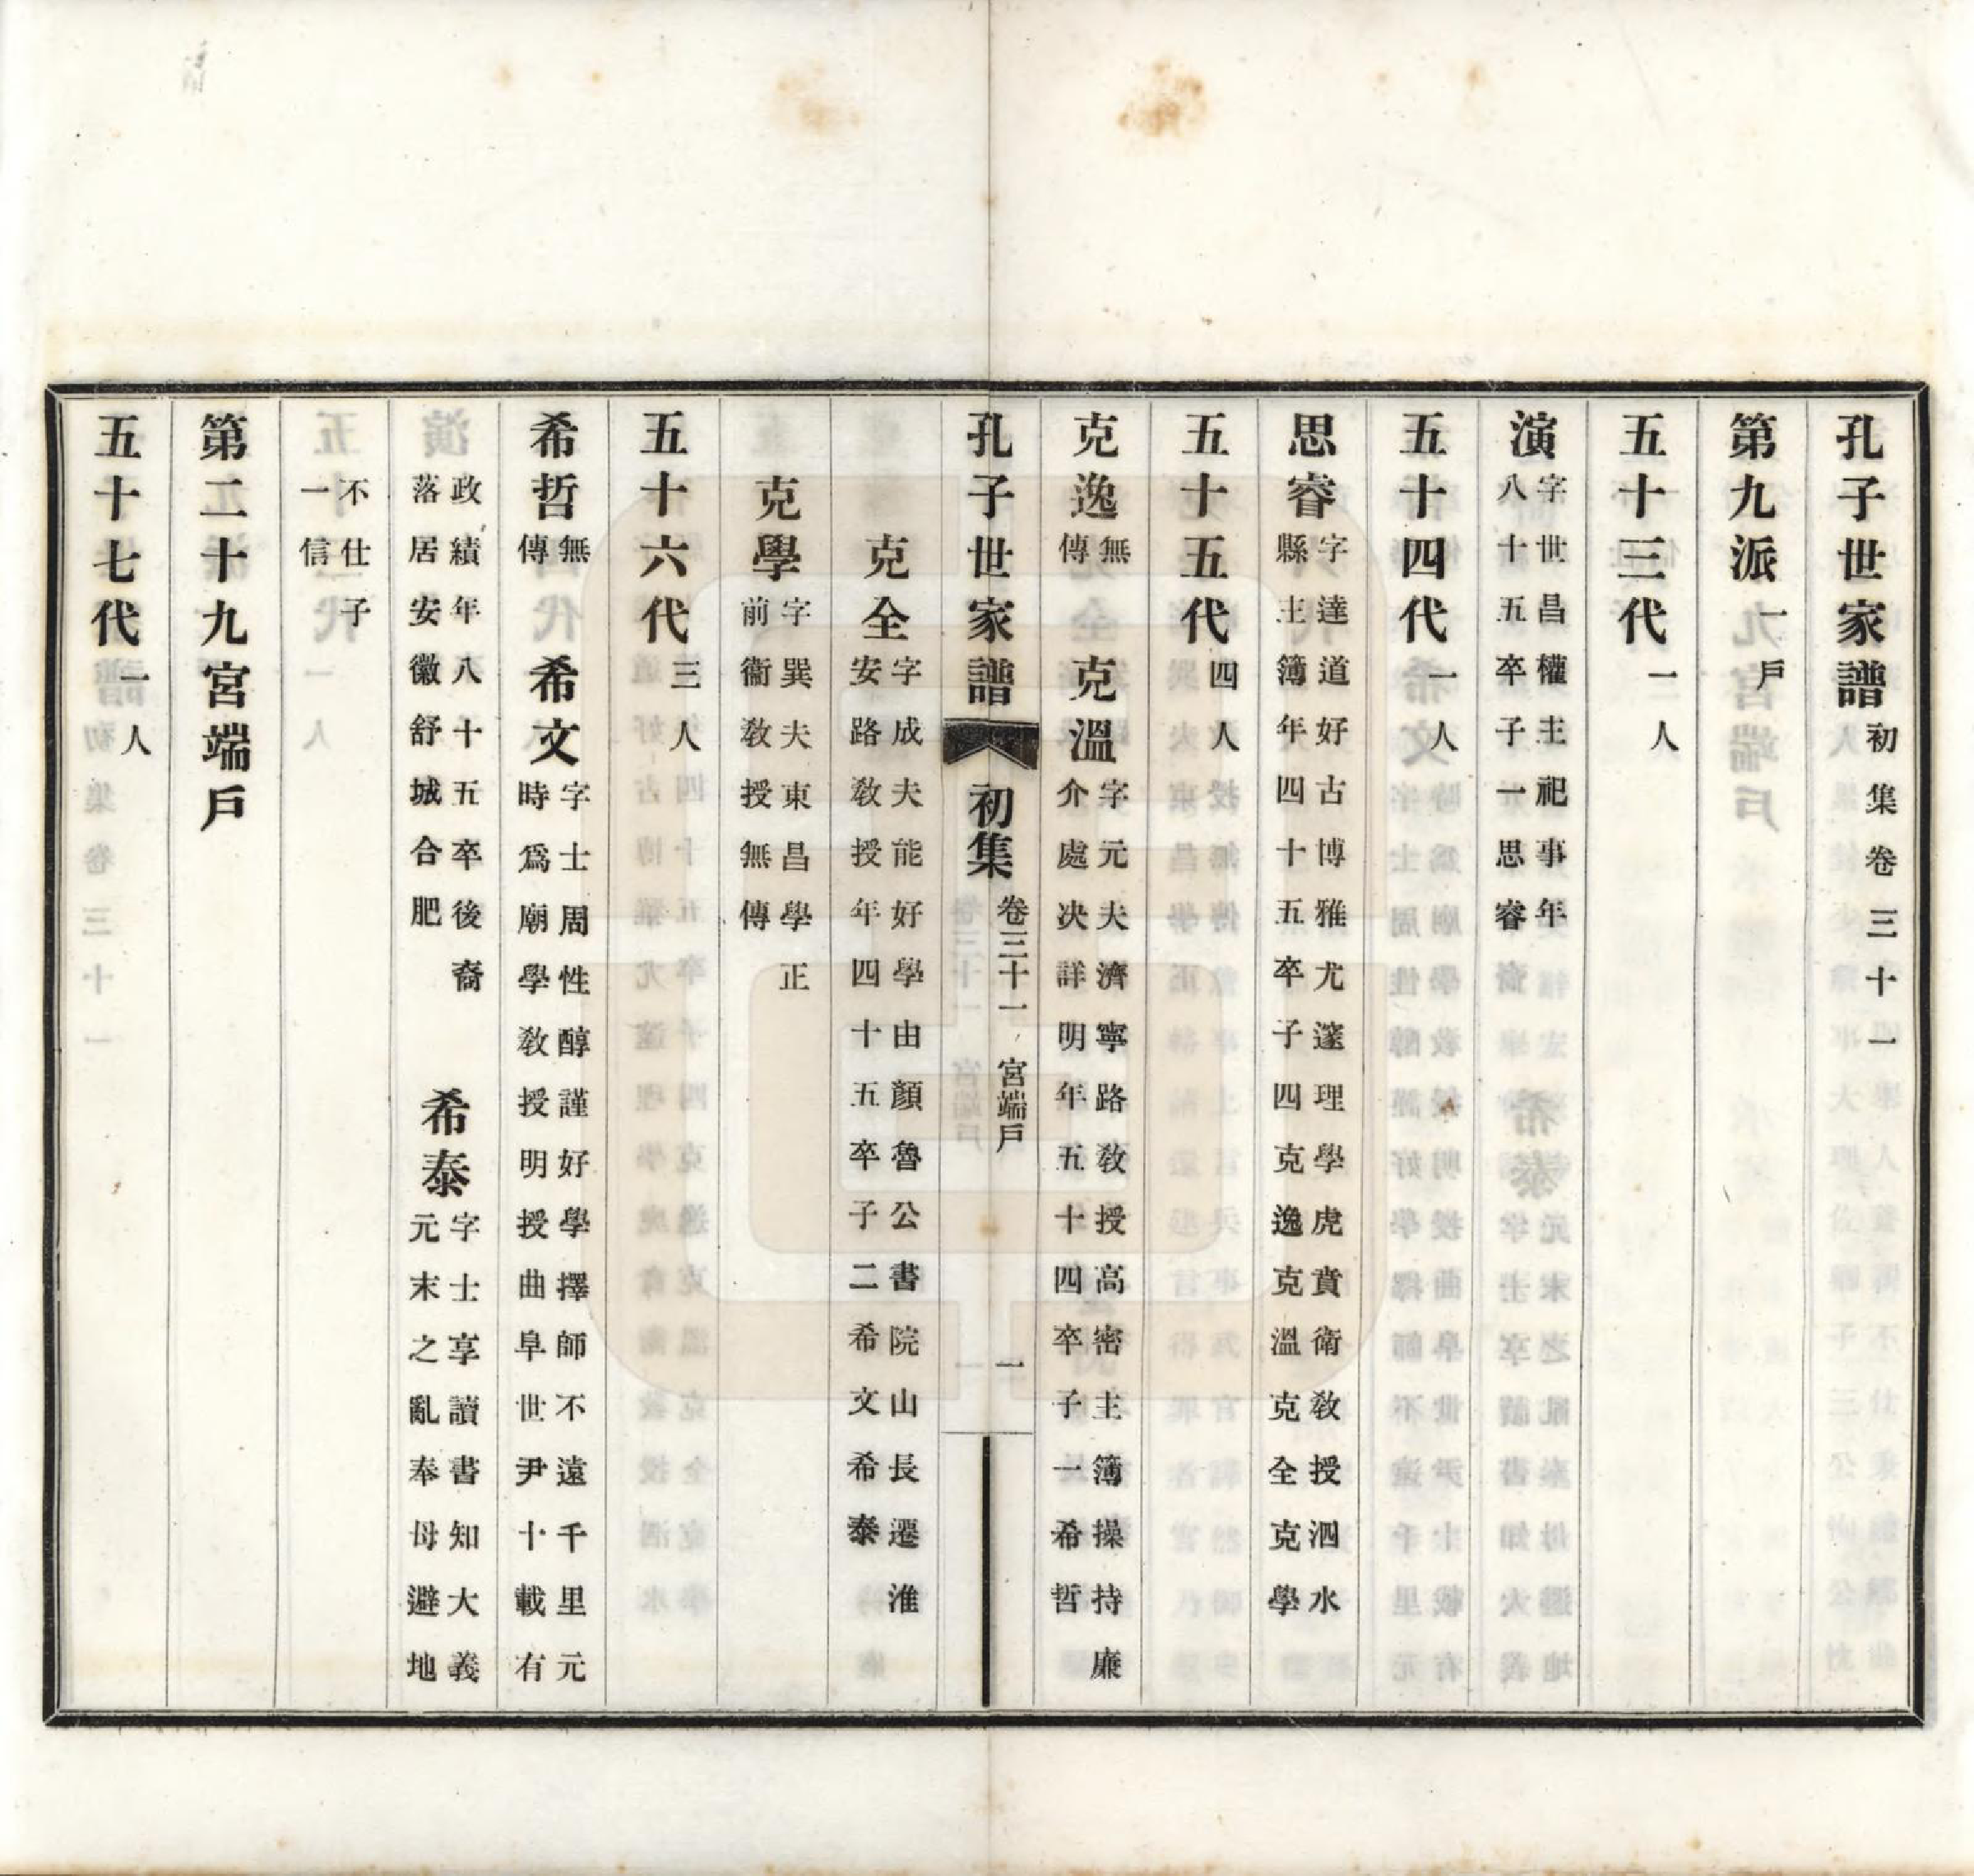 孔子世家譜初集卷三十一
第九派一戶
五十三代一人
演字世昌權主祀事年八十五卒子一思睿
五十四代一人
思睿字達道好古博雅尤邃理學虎賁衛教授泗水縣主簿年四十五卒子四克逸克溫克全克學
五十五代四人
克逸無傳 克溫字元夫濟寧路教授高密主簿操持廉介處决詳明年五十四卒子一希哲
孔子世家譜 初集 卷三十一 宮端戶 一
克全字成夫能好學由顏魯公書院山長遷淮安路教授年四十五卒子二希文希泰
克學字巽夫東昌學正前衞教授無傳
五十六代三人
希哲無傳 希文字士周性醇謹好學擇師不遠千里元時爲廟學教授明授曲阜世尹十載有
政績年八十五卒後裔落居安徽舒城合肥 希泰字士享讀書知大義元末之亂奉母避地
不仕子一信
第二十九宮端戶
五十七代一人